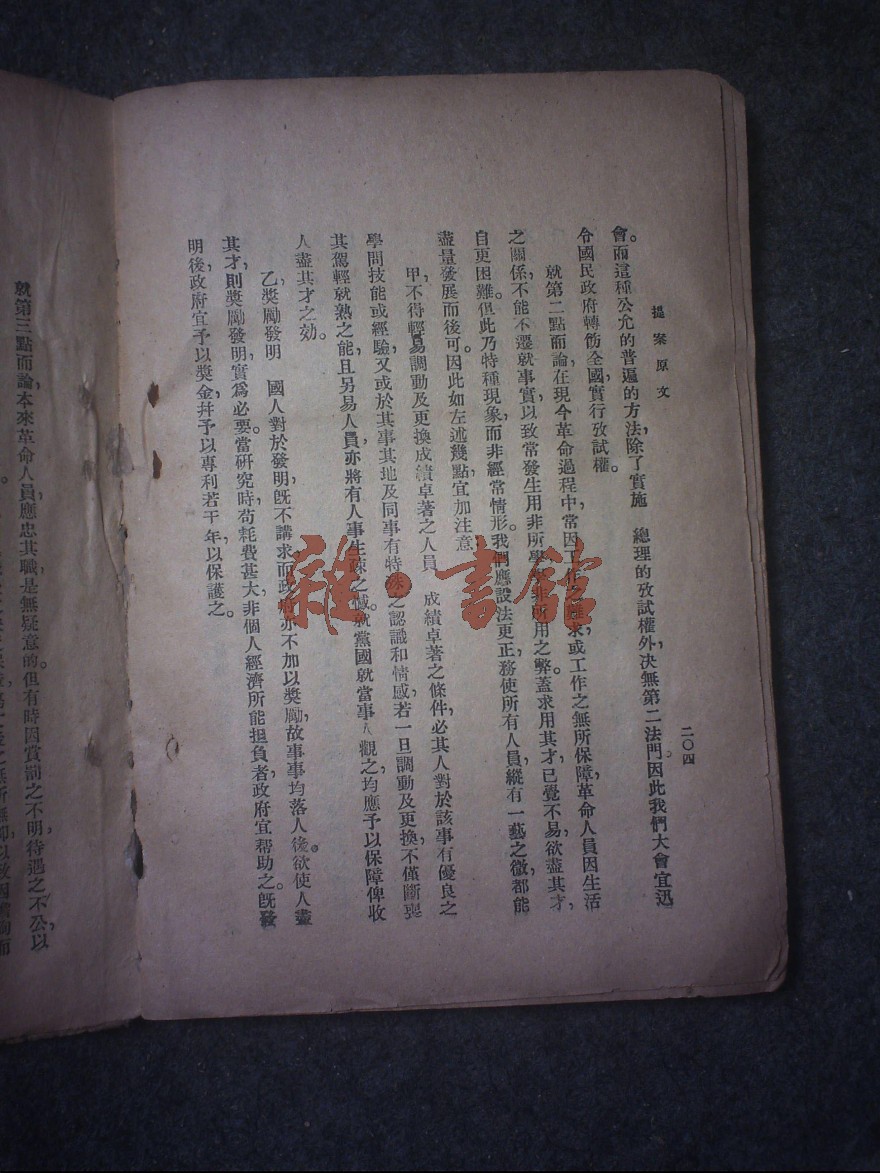 提案原文
二〇四
會。而這種公允的普遍的方法,除了實施　總理的攷試權外,決無第二法門。因此我們大會宜迅
令國民政府轉飭全國,實行攷試權。
就第二點而論,在現今革命過程中,常因工作之難求,或工作之無所保障,革命人員因生活
之關係,不能不遷就事實,以致常發生用非所學,學非所用之弊。蓋求用其才,已覺不易,欲盡其才,
自更困難。但此乃特種現象,而非經常情形。我們應設法更正,務使所有人員,縱有一藝之微,都能
盡量發展而後可。因此如左述幾點,宜加注意,
甲,不得輕易調動及更換成績卓著之人員　成績卓著之條件,必其人對於該事有優良之
學問技能或經驗,又或於其事其地及同事有特殊之認識和情感,若一旦調動及更換,不僅斷喪
其駕輕就熟之能,且另易人員,亦將有人事生疎之憾。就黨國就當事人觀之,均應予以保障,俾收
人盡其才之効。
乙,獎勵發明　國人對於發明,旣不講求,而政府亦不加以獎勵,故事事均落人後。欲使人盡
其才,則獎勵發明,實爲必要。當研究時,苟耗費甚大,非個人經濟所能担負者,政府宜帮助之。旣發
明後,政府宜予以獎金,幷予以專利若干年,以保護之。
就第三點而論,本來革命人員,應忠其職,是無疑意的。但有時因賞罰之不明,待遇之不公,以
雜·書館